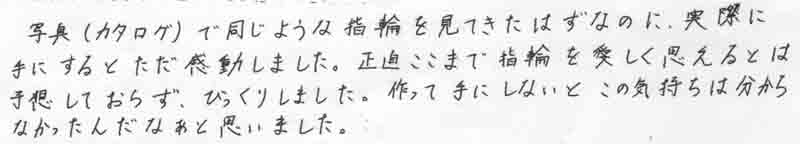 写真（カタログ）で同じような指輪を見てきたはずなのに、実際に
手にするとただ感動しました。正直ここまで指輪を愛しく思えるとは
予想しておらず、びっくりしました。作って手にしないとこの気持ちは分から
なかったんだなぁと思いました。